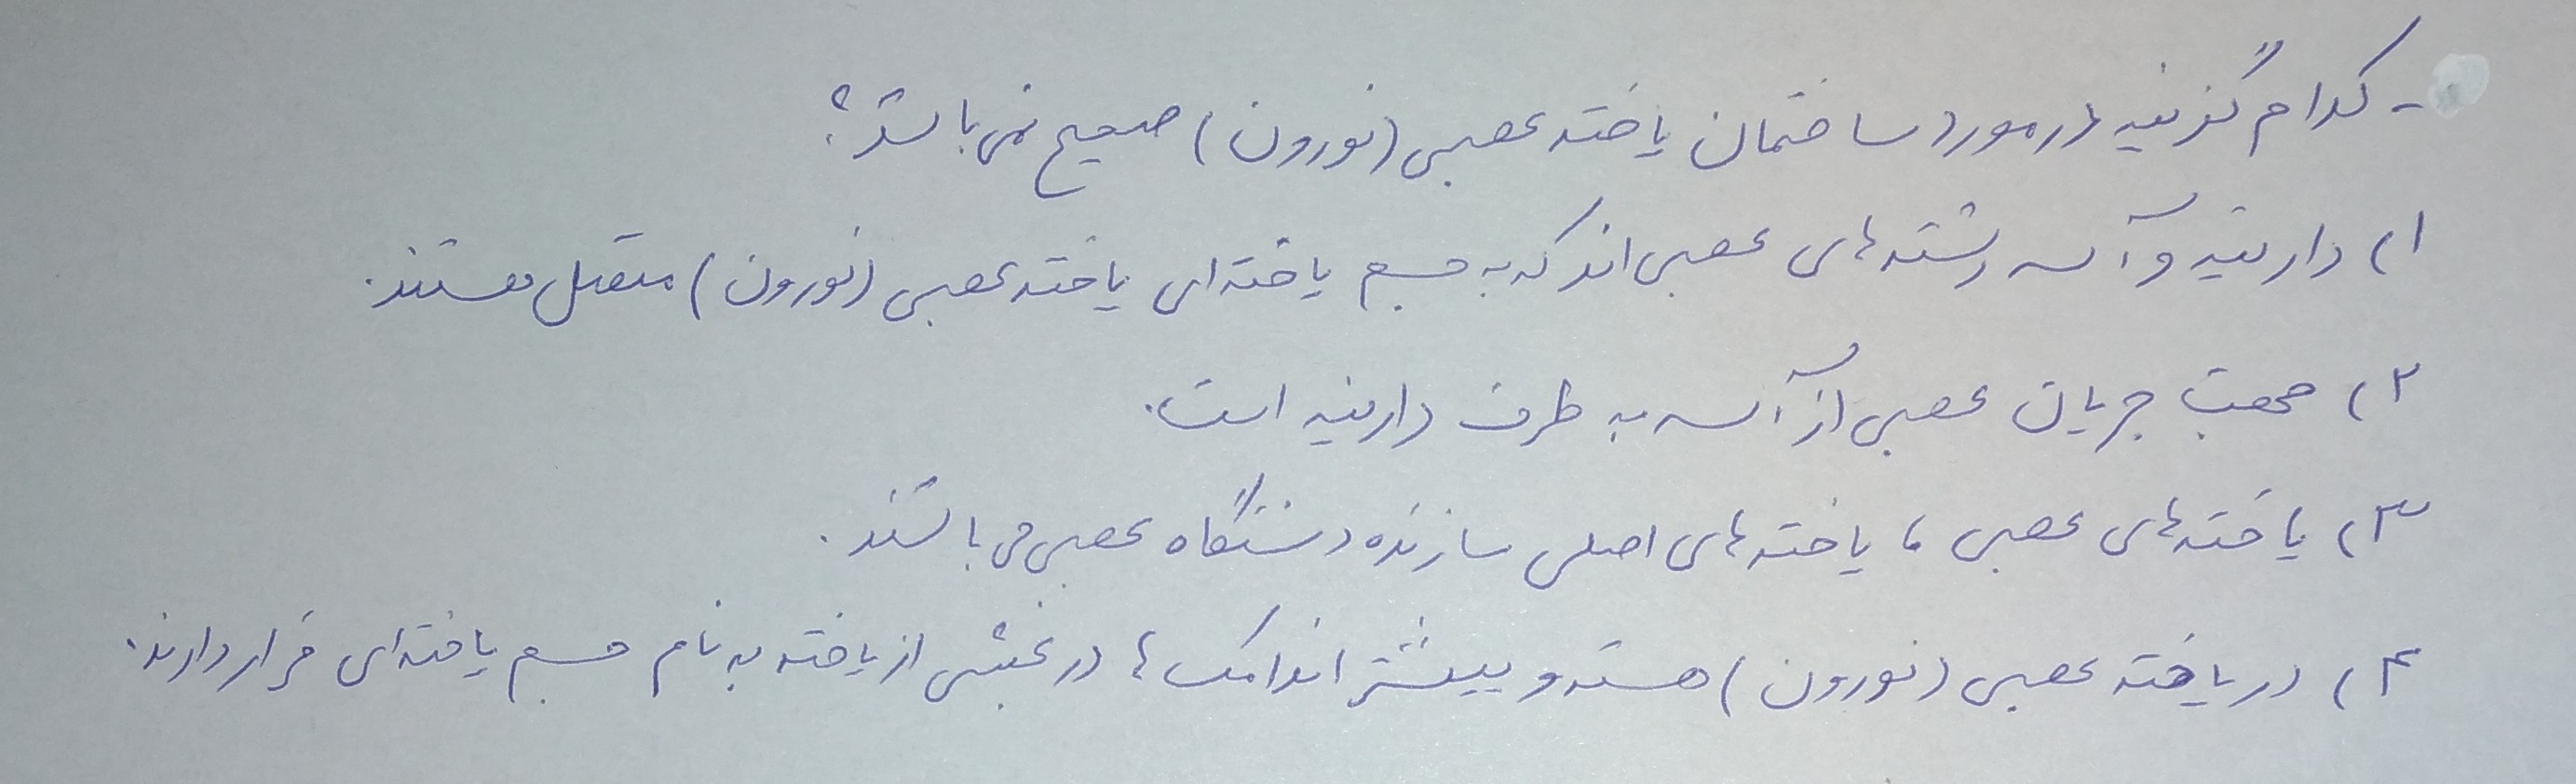 - کدام گزینه در مورد ساختمان یاخته عصبی (نورون) صحیح نمی باشد؟
۱) دارینه و آسه رشته‌های عصبی اند که به جسم یاخته ای یاخته عصبی (نورون) متصل هستند.
۲) جهت جریان عصبی از آسه به طرف دارینه است.
۳) یاخته‌های عصبی، یاخته‌های اصلی سازنده دستگاه عصبی می باشند.
۴) در یاخته عصبی (نورون) هسته و بیشتر اندامک ها در بخشی از یاخته به نام جسم یاخته ای قرار دارند.